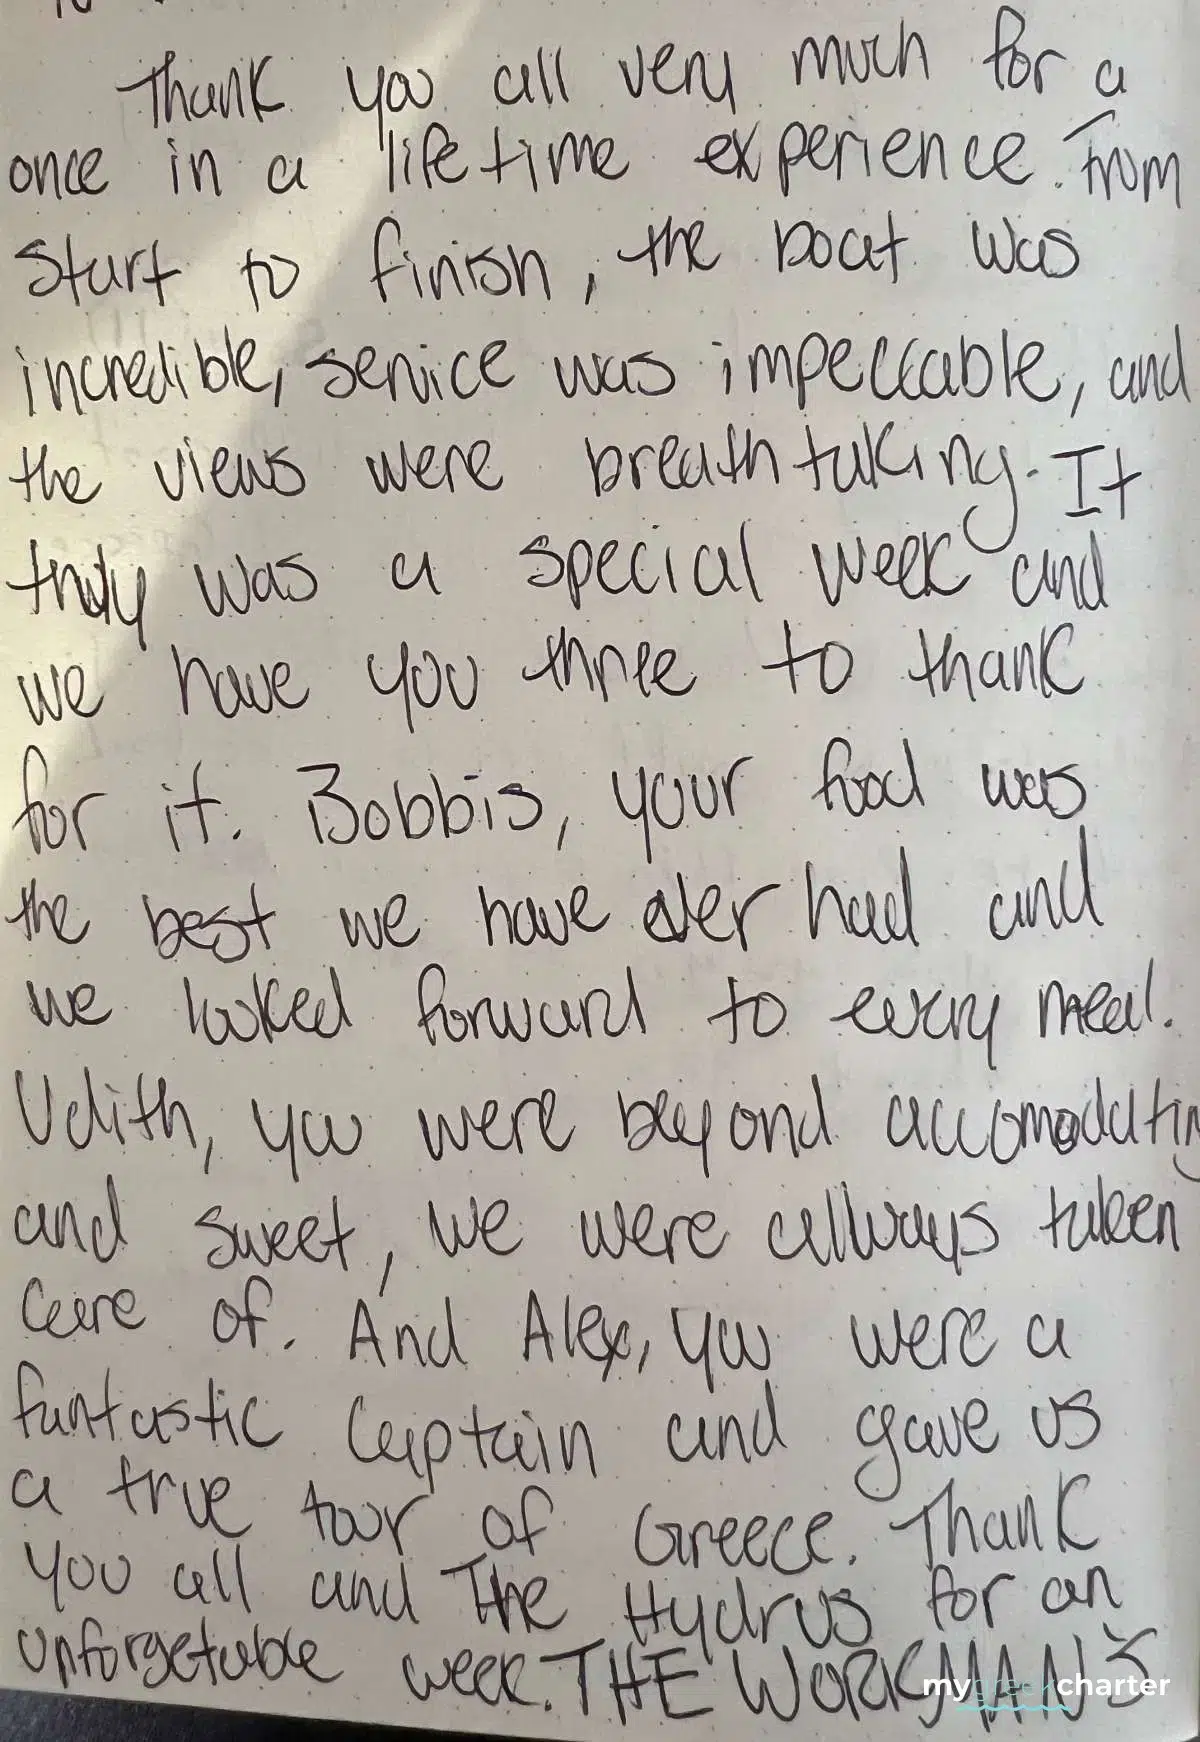 Thank you all very much for a
once in a lifetime experience. From
start to finish, the boat was
incredible, service was impeccable, and
the views were breathtaking. It
truly was a special week and
we have you three to thank
for it. Bobbis, your food was
the best we have ever had and
we looked forward to every meal.
Udith, you were beyond accomodating
and sweet, we were allways taken
care of. And Alex, you were a
fantastic Captain and gave us
a true tour of Greece. Thank
you all and The Hydrus for an
unforgetable week. THE WORKMAN'S
mygreekcharter